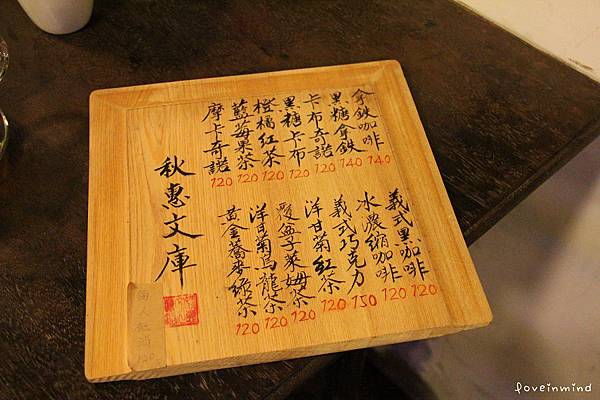 拿鐵咖啡 140
黑糖拿鐵 140
卡布奇諾 120
黑糖卡布 120
橙橘紅茶 120
藍莓果茶 120
摩卡奇諾 120
義式黑咖啡 120
冰濃縮咖啡 120
義式巧克力 150
洋甘菊紅茶 120
覆盆子萊姆茶 120
洋甘菊烏龍茶 120
黃金蕎麥綠茶 120
秋惠文庫
foveinmind